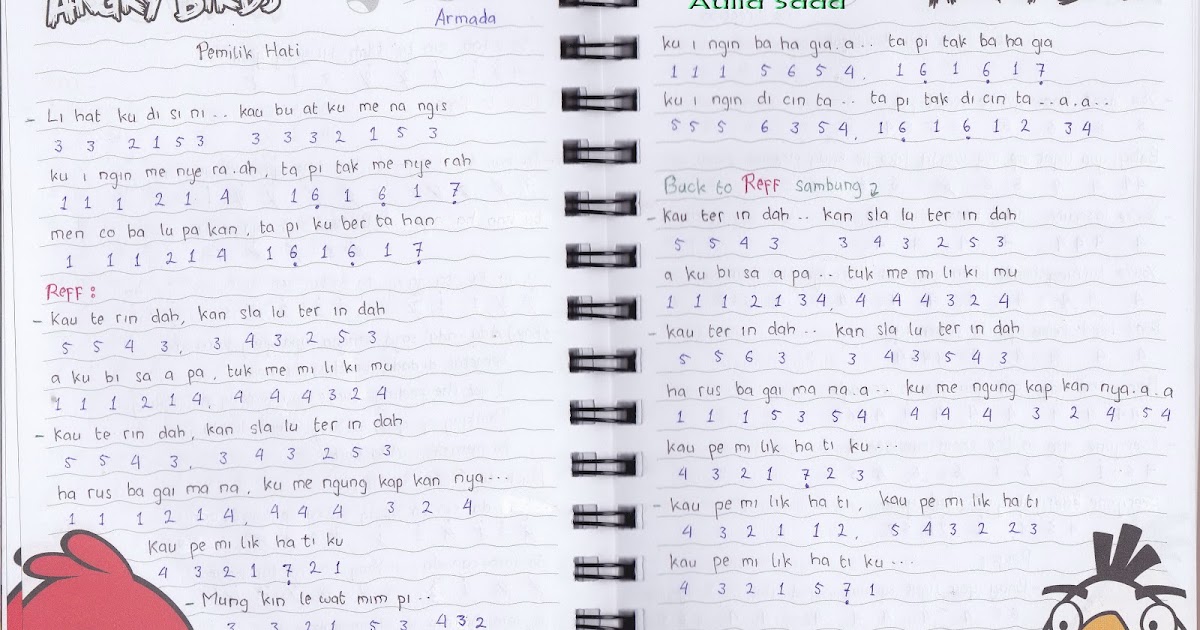 ANGRY BIRDS
Armada
Pemilik Hati
- Li hat ku di si ni .. kau bu at ku me na ngis
3 3 2 1 5 3 3 3 3 2 1 5 3
ku i ngin me nye ra . ah , ta pi tak me nye rah
1 1 1 2 1 4 1 6 1 6 1 7
men co ba lu pa kan , ta pi ku ber ta han
1 1 1 2 1 4 1 6 1 6 1 7
Reff :
- Kau te rin dah, kan sla lu ter in dah
5 5 4 3 , 3 4 3 2 5 3
a ku bi sa a pa , tuk me mi li ki mu
1 1 1 2 1 4 , 4 4 4 3 2 4
- Kau te rin dah, kan sla lu ter in dah
5 5 4 3 , 3 4 3 2 5 3
ha rus ba gai ma na , ku me ngung kap kan nya ...
1 1 1 2 1 4 , 4 4 4 3 2 4
Kau pe mi lik ha ti ku
4 3 2 1 7 2 1
- Mung kin le wat mim pi ..
3 3 2 1 5 3 4 3 2
Aulia saad
ku i ngin ba ha gia . a .. ta pi tak ba ha gia
1 1 1 5 6 5 4 . 1 6 1 6 1 7
ku i ngin di cin ta .. ta pi tak di cin ta .. a . a ..
5 5 5 6 3 5 4 , 1 6 1 6 1 2 3 4
Buck to Reff sambung 2
- Kau ter in dah .. kan sla lu ter in dah
5 5 4 3 3 4 3 2 5 3
a ku bi sa a pa .. tuk me mi li ki mu
1 1 1 2 1 3 4 , 4 4 4 3 2 4
- Kau ter in dah .. kan sla lu ter in dah
5 5 6 3 3 4 3 5 4 3
ha rus ba gai ma na . a .. ku me ngung kap kan nya . a . a
1 1 1 5 3 5 4 4 4 4 3 2 4 5 4
kau pe mi lik ha ti ku ...
4 3 2 1 7 2 3
- Kau pe mi lik ha ti , kau pe mi lik ha ti
4 3 2 1 1 2 , 5 4 3 2 2 3
kau pe mi lik ha ti ku ...
4 3 2 1 5 7 1